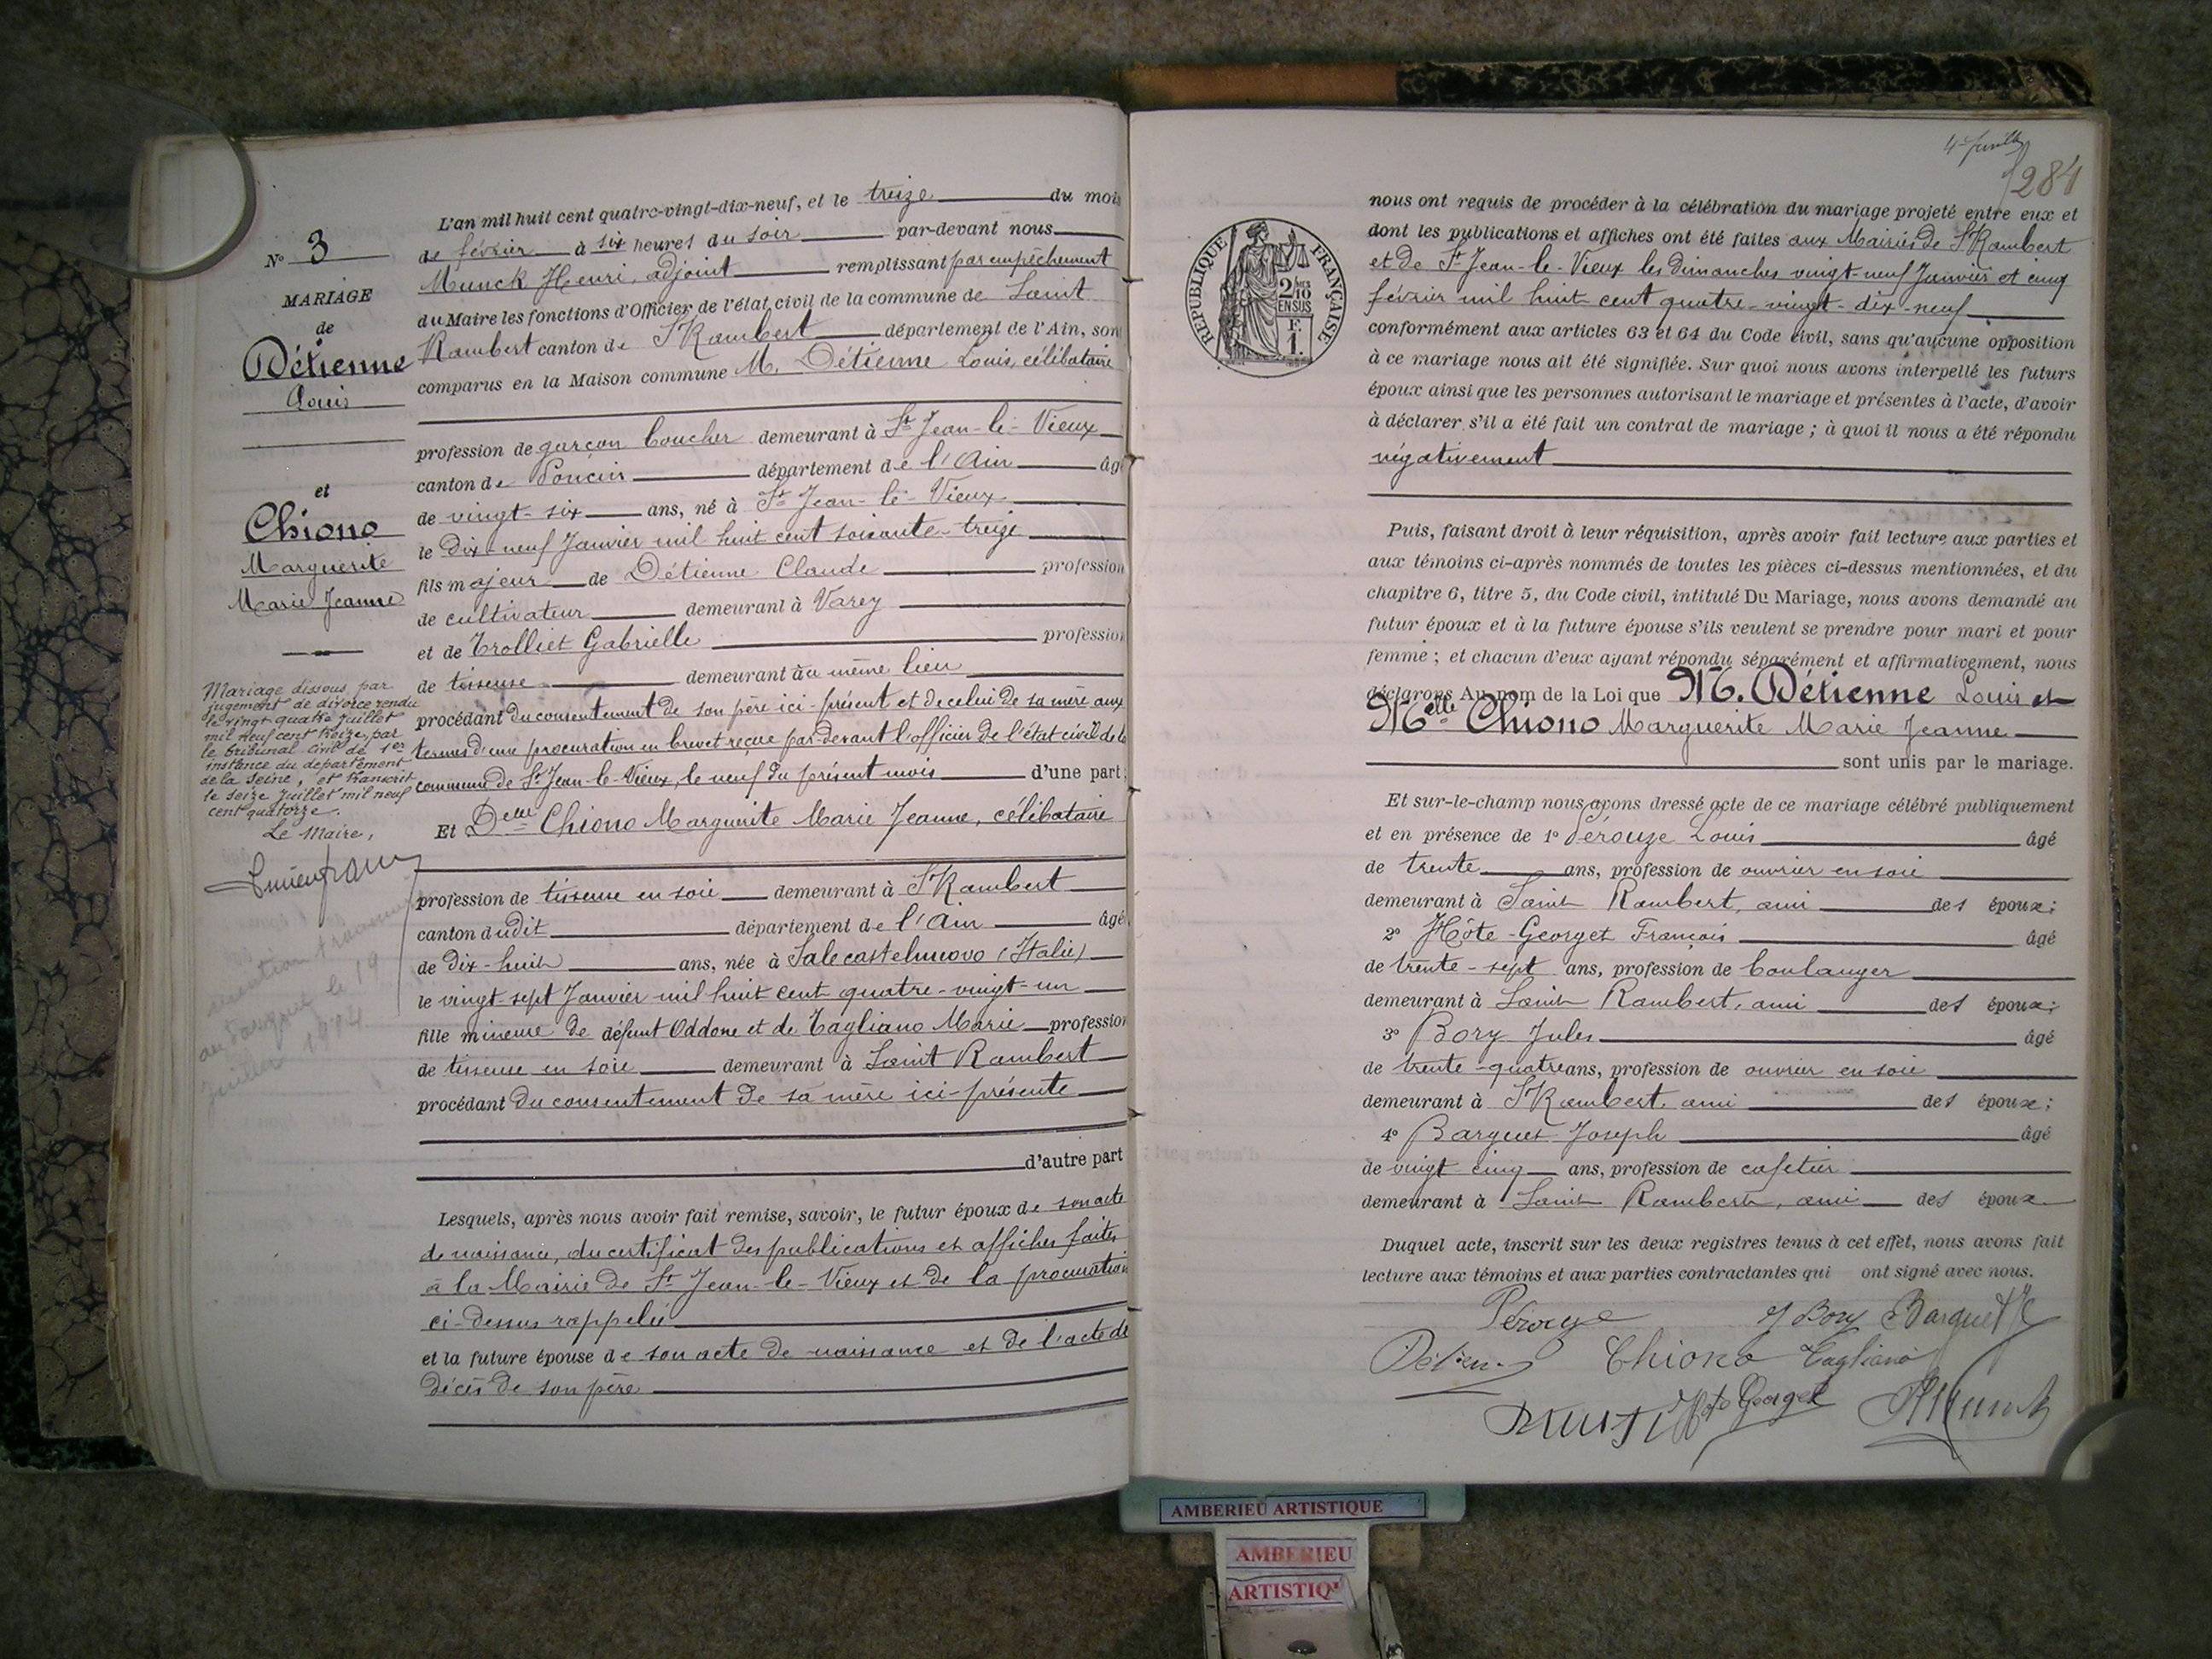 N° 3
MARIAGE
de
Détienne
Louis
et
Chiono
Marguerite
Marie Jeanne
Mariage dissous par
jugement de divorce rendu
le vingt quatre juillet
mil neuf cent treize par
le tribunal civil de 1ère
instance du département
de la Seine, et transcrit
le seize juillet mil neuf
cent quatorze.
Le Maire,
L'an mil huit cent quatre-vingt-dix-neuf, et le treize du mois
de février à six heures du soir par-devant nous
Munck Henri, adjoint remplissant par empêchement
du Maire les fonctions d'Officier de l'état civil de la commune de Saint
Rambert canton de St Rambert département de l'Ain, sont
comparus en la Maison commune M. Détienne Louis, célibataire
profession de garçon boucher demeurant à St Jean-le-Vieux
canton de Poncin département de l'Ain âgé
de vingt-six ans, né à St Jean-le-Vieux
le dix-neuf Janvier mil huit cent soixante-treize
fils majeur de Détienne Claude profession
de cultivateur demeurant à Varey
et de Trolliet Gabrielle profession
de tisseuse demeurant au même lieu
procédant du consentement de son père ici-présent et de celui de sa mère aux
termes d'une procuration en brevet reçue par-devant l'officier de l'état civil de la
commune de St Jean-le-Vieux, le neuf du présent mois d'une part;
Et Delle Chiono Marguerite Marie Jeanne, célibataire
profession de tisseuse en soie demeurant à St Rambert
canton dudit département de l'Ain âgée
de dix-huit ans, née à Salecastelnuovo (Italie)
le vingt-sept Janvier mil huit cent quatre-vingt-un
fille mineure de défunt Oddone et de Tagliano Marie profession
de tisseuse en soie demeurant à Saint Rambert
procédant du consentement de sa mère ici-présente
d'autre part
Lesquels, après nous avoir fait remise, savoir, le futur époux de son acte
de naissance, du certificat des publications et affiches faites
à la Mairie de St Jean-le-Vieux et de la procuration
ci-dessus rappelée
et la future épouse de son acte de naissance et de l'acte de
décès de son père
284
RÉPUBLIQUE FRANÇAISE
2/10
EN SUS
F.
1.
nous ont requis de procéder à la célébration du mariage projeté entre eux et
dont les publications et affiches ont été faites aux Mairies de St Rambert
et de St Jean-le-Vieux les dimanches vingt-neuf Janvier et cinq
février mil huit cent quatre-vingt-dix-neuf
conformément aux articles 63 et 64 du Code civil, sans qu'aucune opposition
à ce mariage nous ait été signifiée. Sur quoi nous avons interpellé les futurs
époux ainsi que les personnes autorisant le mariage et présentes à l'acte, d'avoir
à déclarer s'il a été fait un contrat de mariage; à quoi il nous a été répondu
négativement
Puis, faisant droit à leur réquisition, après avoir fait lecture aux parties et
aux témoins ci-après nommés de toutes les pièces ci-dessus mentionnées, et du
chapitre 6, titre 5, du Code civil, intitulé Du Mariage, nous avons demandé au
futur époux et à la future épouse s'ils veulent se prendre pour mari et pour
femme; et chacun d'eux ayant répondu séparément et affirmativement, nous
déclarons Au nom de la Loi que M. Détienne Louis et
Melle Chiono Marguerite Marie Jeanne
sont unis par le mariage.
Et sur-le-champ nous avons dressé acte de ce mariage célébré publiquement
et en présence de 1° Pérouze Louis âgé
de trente ans, profession de ouvrier en soie
demeurant à Saint Rambert, ami des époux;
2° Hôte-Georget François âgé
de trente-sept ans, profession de boulanger
demeurant à Saint Rambert, ami des époux;
3° Bory Jules âgé
de trente-quatre ans, profession de ouvrier en soie
demeurant à St Rambert, ami des époux;
4° Barquet Joseph âgé
de vingt cinq ans, profession de cafetier
demeurant à Saint Rambert, ami des époux
Duquel acte, inscrit sur les deux registres tenus à cet effet, nous avons fait
lecture aux témoins et aux parties contractantes qui ont signé avec nous.
Pérouze J Bory Barquet J
Chiono Tagliano
Georget HMunck
AMBERIEU ARTISTIQUE
AMBERIEU
ARTISTIQ